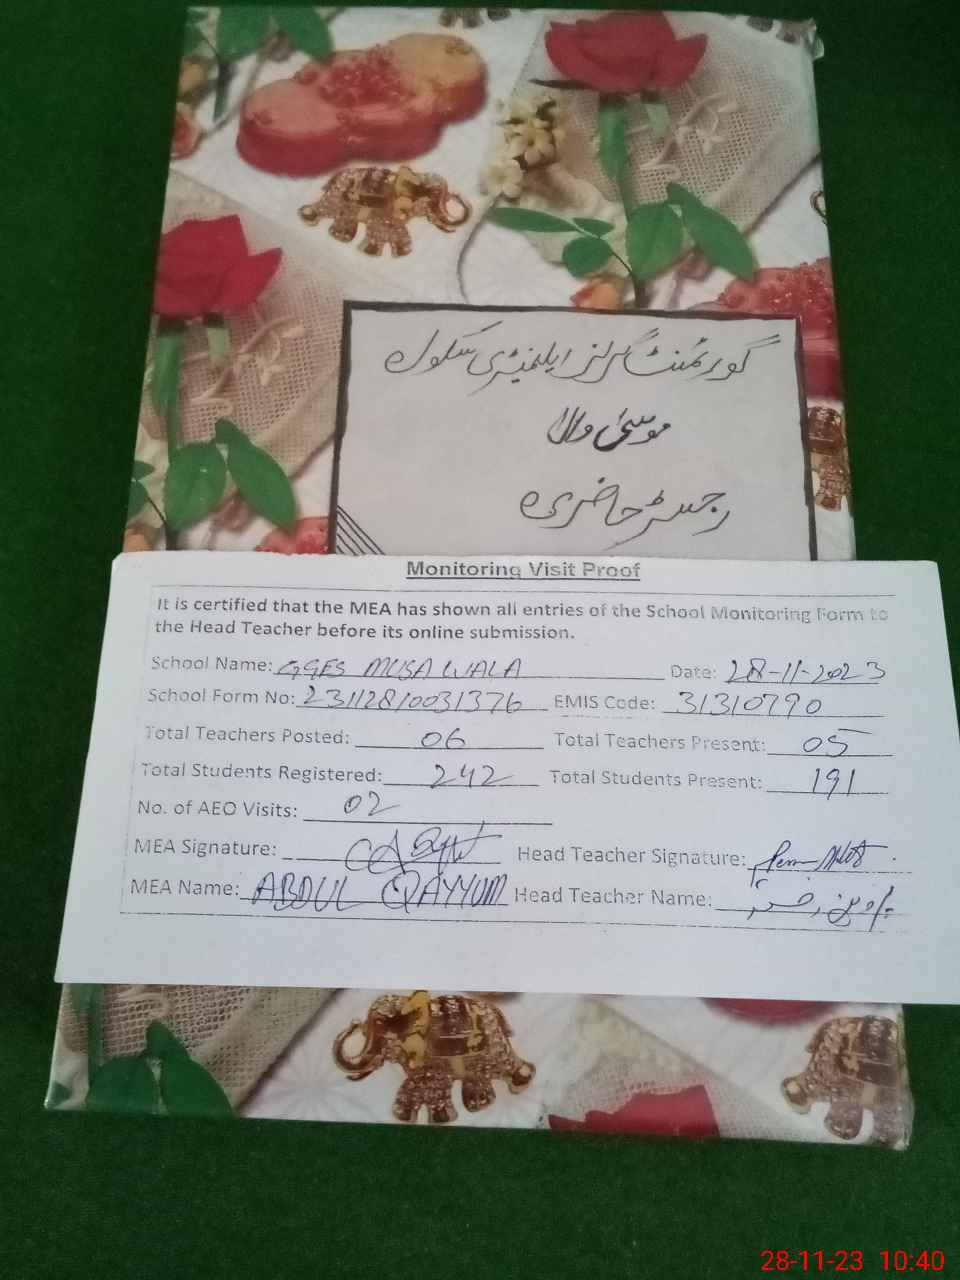 گورنمنٹ گرلز ایلمنیٹری سکول
موسیٰ والا
رجسٹر حاضری
Monitoring Visit Proof
It is certified that the MEA has shown all entries of the School Monitoring Form to
the Head Teacher before its online submission.
School Name: GGES MUSA WALA Date: 28-11-2023
School Form No: 23112810031376 EMIS Code: 31310790
Total Teachers Posted: 06 Total Teachers Present: 05
Total Students Registered: 242 Total Students Present: 191
No. of AEO Visits: 02
MEA Signature: Head Teacher Signature:
MEA Name: ABDUL QAYYUM Head Teacher Name:
28-11-23 10:40